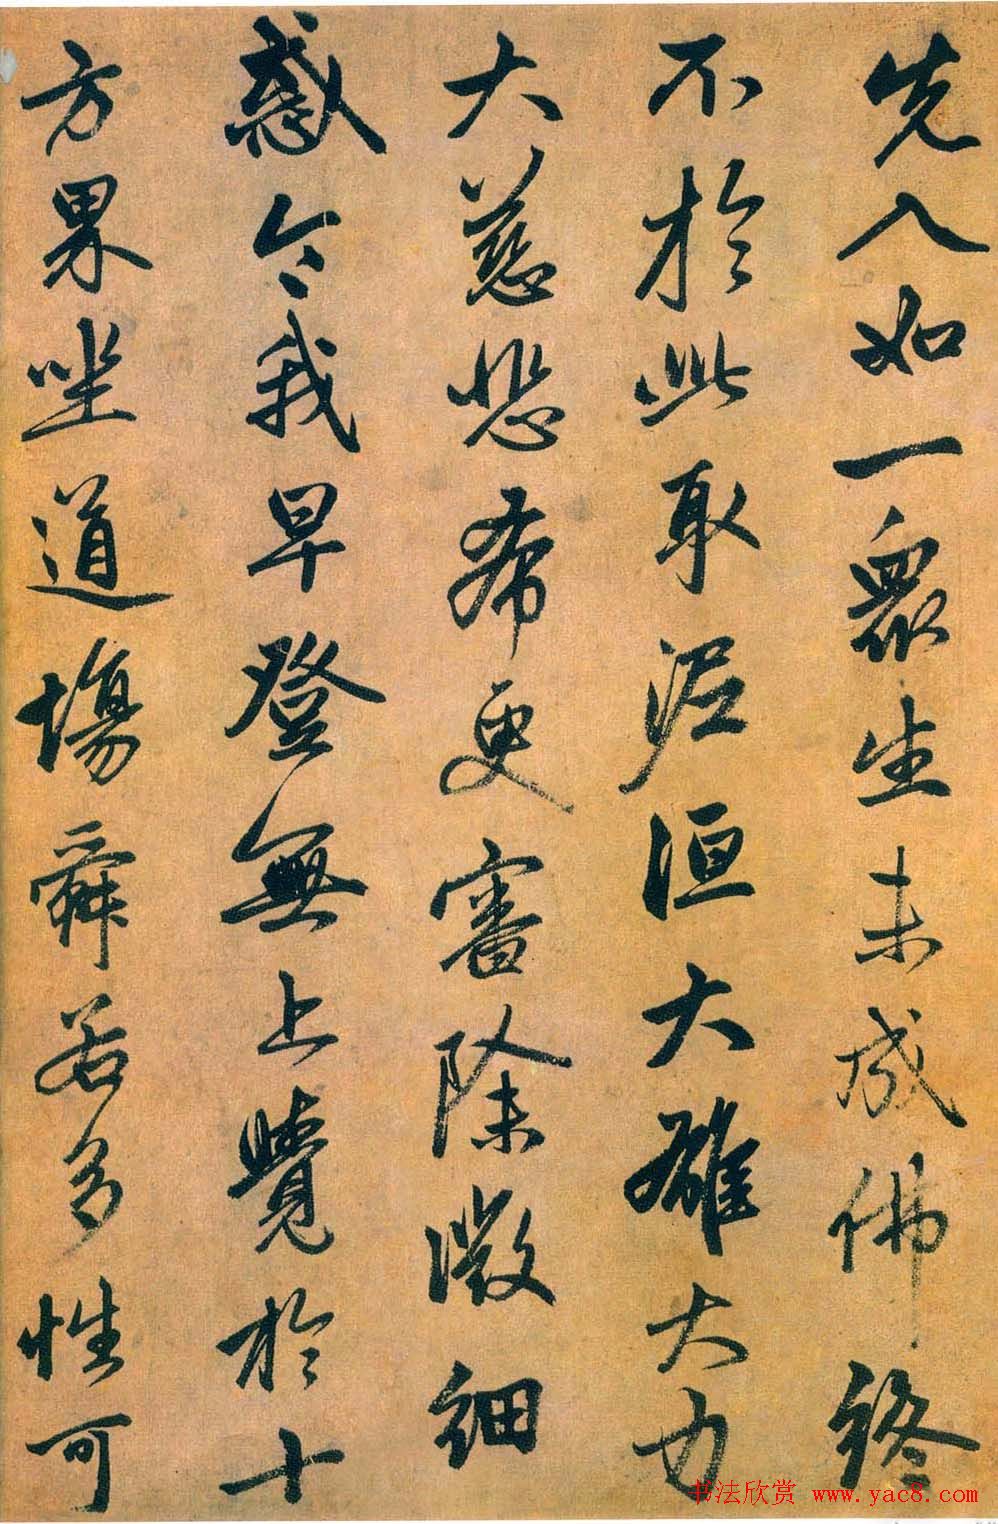 先入如一眾生未成佛終
不於此取泥洹大雄大力
大慈悲希更審除微細
惑令我早登無上覺於十
方界坐道場舜若多性可
书法欣赏 www.yac8.com